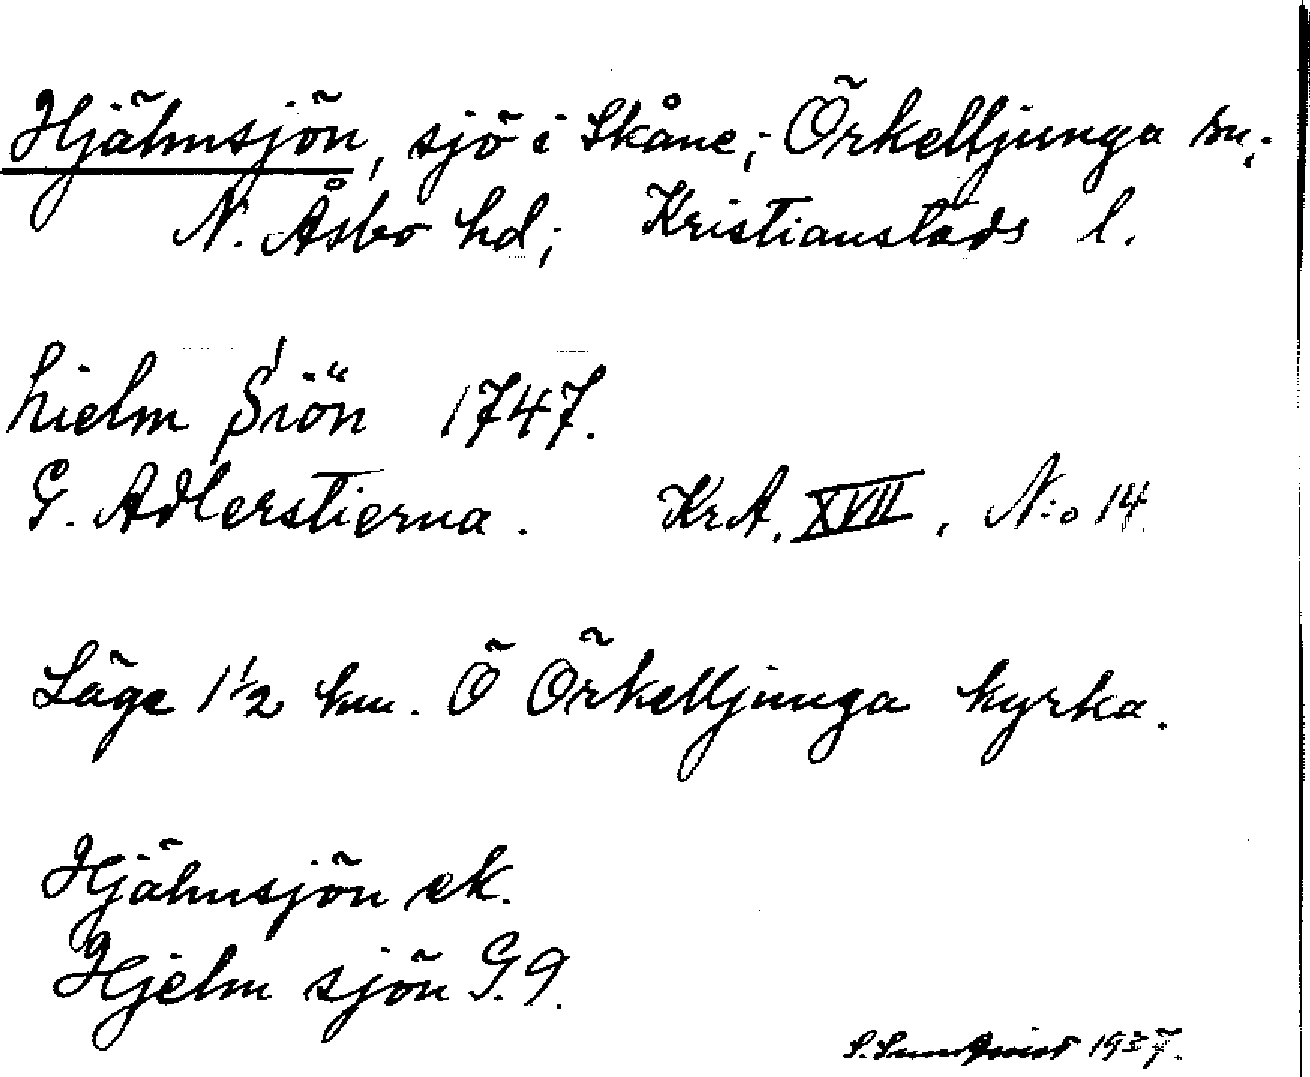 Hjälmsjön, sjö i Skåne; Örkelljunga sn;
N. Åsbo hd; Kristianstads l.
hielm Siön 1747.
G. Adlerstierna. KrA. XVII, N:o 14
Läge 1½ km. Ö Örkelljunga kyrka.
Hjälmsjön ek.
Hjelm sjön G.9.
S. Sundqvist 1937.